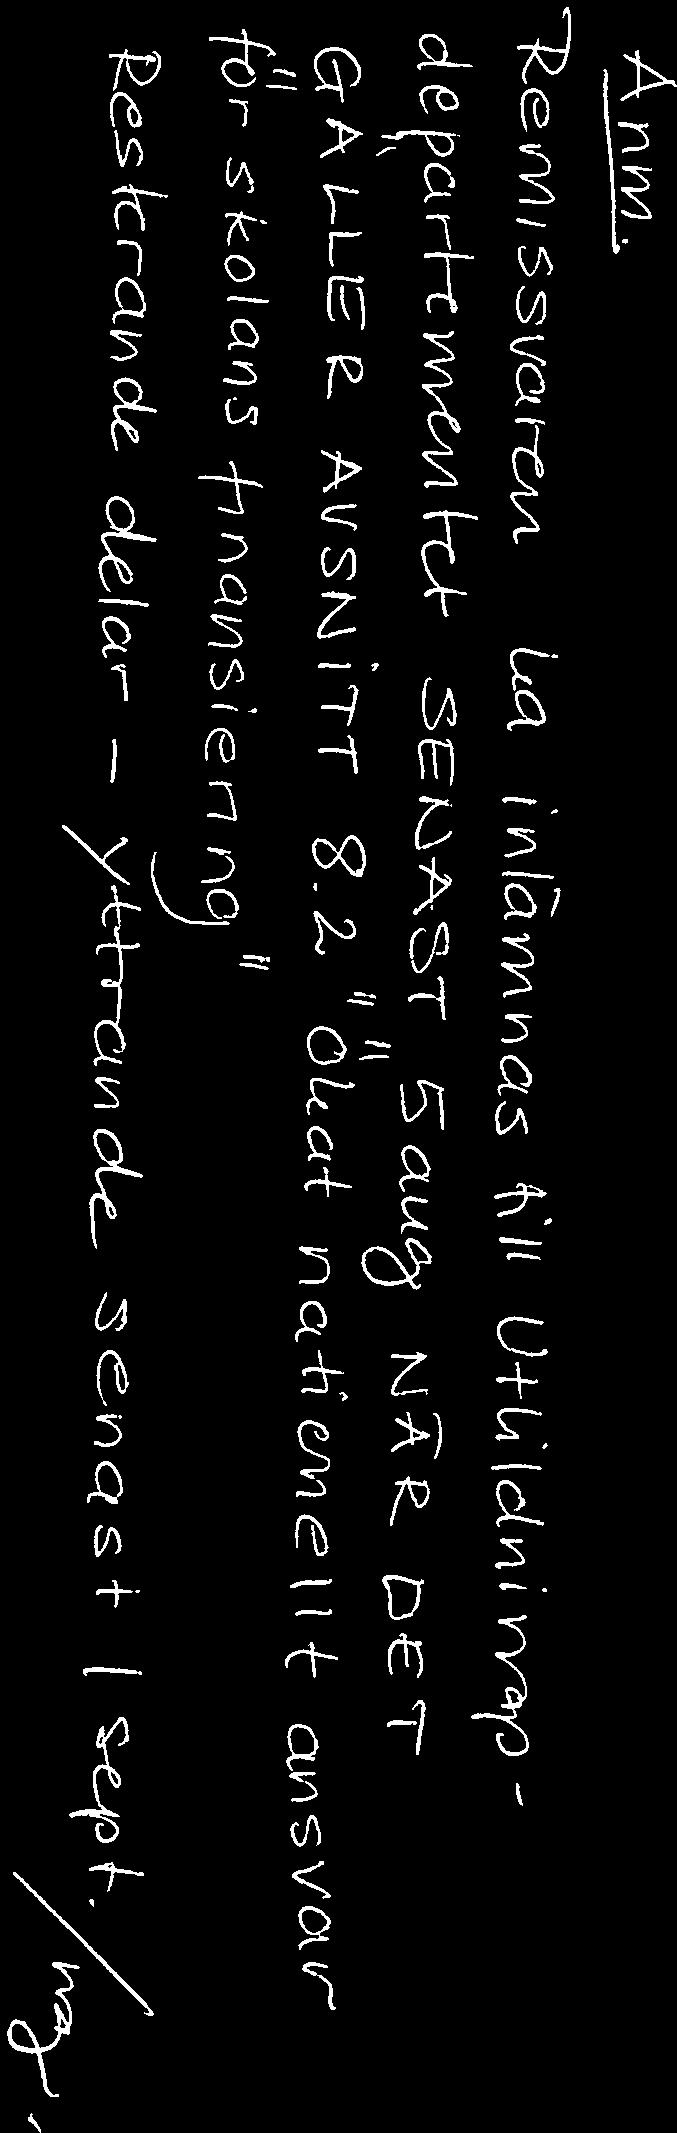 Anm.
Remissvaren ska inlämnas till Utbildnings-
departementet SENAST 5 aug NÄR DET
GÄLLER AVSNITT 8.2 "Ökat nationellt ansvar
för skolans finansiering"
Resterande delar - yttrande senast 1 sept.